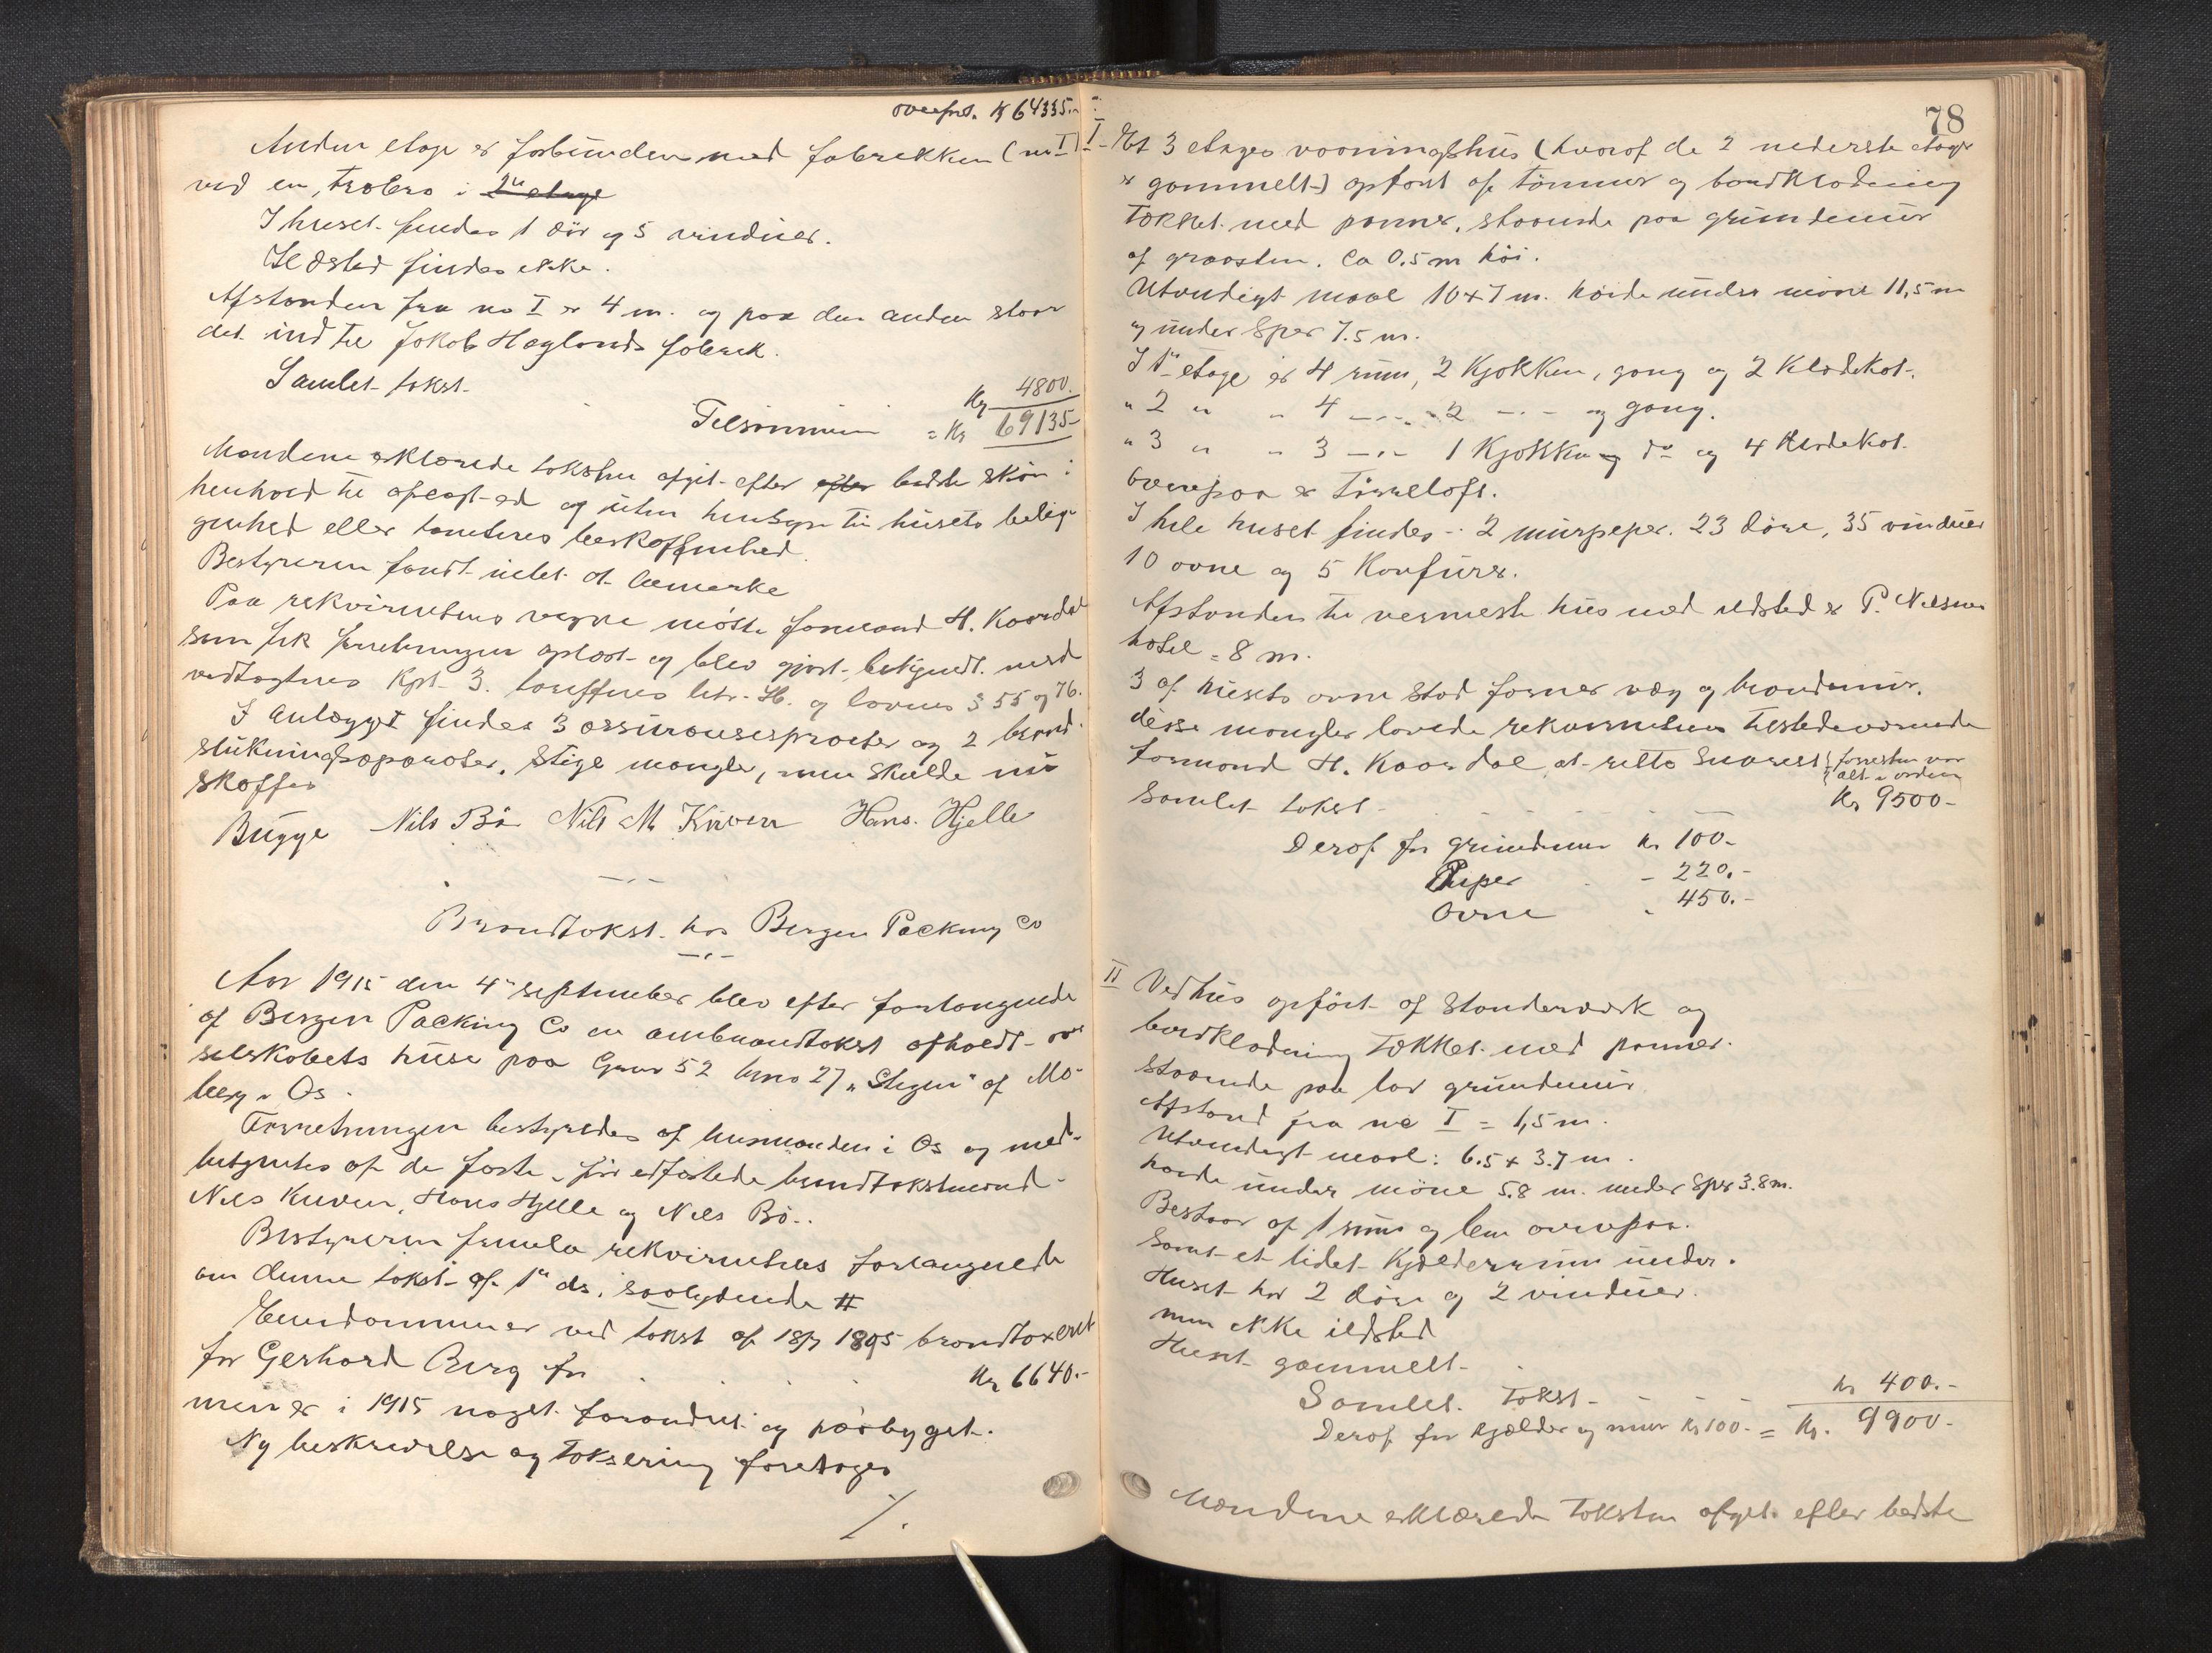 overført. Kr 64335.-
Anden etage er forbunden med fabrikken (no I)
ved en træbro i 2n etage
I huset findes 1 dør og 5 vinduer.
Ildsted findes ikke.
Afstanden fra no I er 4 m. og paa den anden staar
det ind til Jakob Haglands fabrik.
Samlet takst. Kr 4800.
Tilsammen = Kr 69135-
Mændene erklærede taksten afgit efter efter bedste skjøn i
henhold til aflagt ed og uten hensyn til husets belig-
genhed eller tomtens beskaffenhed.
Bestyreren fandt intet at bemerke
Paa rekvirentens vegne møtte formand H. Kaardal
som fik forretningen oplæst og blev gjort bekjendt med
vedtægtenes Kpt. 3. tariffens litr. H. og lovens § 55 og 76.
I anlægget findes 3 assuransesprøiter og 2 brand-
slukningsapparater, stige mangler, men skulde nu
skaffes
Bugge Nils Bø Nils M Kuven Hans Hjelle
Brandtakst hos Bergen Packing Co
Aar 1915 den 4de september blev efter forlangende
af Bergen Packing Co en ombrandtakst afholdt over
selskabets huse paa Gnr 52 brno 27 "Stegen" af Mo-
berg i Os.
Forretningen bestyredes af lensmanden i Os og med-
betjentes af de faste, før edfæstede brandtakstmænd
Nils Kuven, Hans Hjelle og Nils Bø..
Bestyreren fremla rekvirentens forlangende
om denne takst af 1n ds. saalydende #
Eiendommen er ved takst af 18/7 1895 brandtaxeret
for Gerhard Berg for Kr 6640.-
men er i 1915 noget forandret og paabygget.
Ny beskrivelse og taksering foretages
./.
78
I Et 3 etages vaaningshus (hvoraf de 2 nederste etager
er gammelt) opført af tømmer og bordklædning
tækket med panner, staaende paa grundmur
af graasten. Ca 0.5 m høi.
Utvendigt maal 10 x 7 m. høide under møne 11,5 m
og under sper 7.5 m.
I 1n etage er 4 rum, 2 kjøkken, gang og 2 klædekot.
" 2 " " 4 -.- 2 -.- og gang.
" 3 " " 3 -.- 1 kjøkken og do og 4 klædekot.
Ovenpaa er tørreloft.
I hele huset findes: 2 murpiper. 23 døre, 35 vinduer
10 ovne og 5 komfurer.
Afstanden til nærmeste hus med ildsted er P. Nilsens
hotel = 8 m.
3 af husets ovne stod for nær væg og brandmur.
disse mangler lovede rekvirentens tilstedeværende
formand H. Kaardal at rette snarest (forresten var
alt i orden
Samlet takst Kr 9500-
Deraf for grundmur kr 100-
Piper - 220.-
Ovne " 450.-
II Vedhus opført af stenderværk og
bordklædning tækket med panner.
staaende paa lav grundmur
Afstand fra no I = 1,5 m.
Utvendigt maal: 6.5 x 3.7 m.
høide under møne 5.8 m. under sper 3.8 m.
Bestaar af 1 rum og lem ovenpaa.
Samt et lidet kjælderrum under.
Huset har 2 døre og 2 vinduer.
men ikke ildsted
Huset gammelt.
Samlet takst kr 400.-
Deraf for kjælder og mur kr 100.- = Kr. 9900-
Mændene erklærede taksten afgit efter bedste